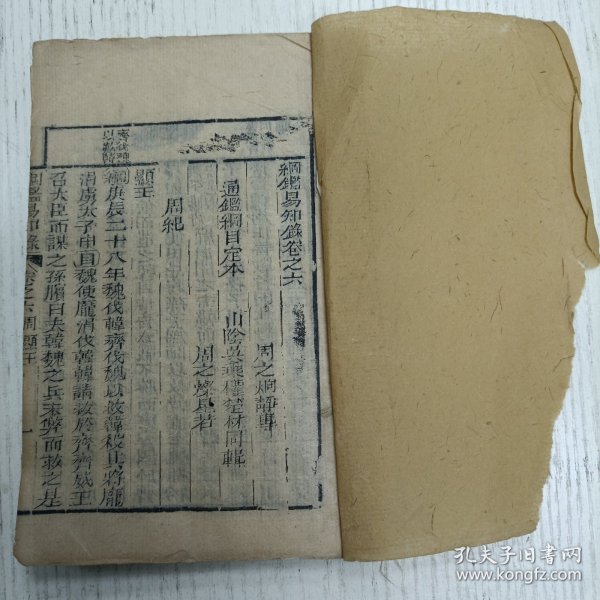 綱鑑易知錄卷之六
周之炯靜專
通鑑綱目定本　山陰吳乘權楚材同輯
周之燦星若
周紀
顯王
綱庚辰二十八年魏伐韓齊伐魏以救韓殺其將龐
涓虜太子申目魏使龐涓伐韓韓請救於齊齊威王
召大臣而謀之孫臏曰夫韓魏之兵未弊而救之是
齊伐魏
以救韓
綱鑑易知錄 卷之六 周 顯王 一
孔夫子旧书网
www.kongfz.com